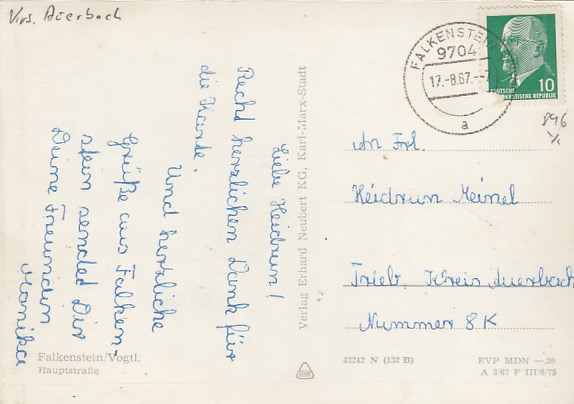 Vws. Auerbach
Liebe Heidrun!
Recht herzlichen Dank für
die Karte.
Und herzliche
Grüße aus Falken-
stein sendet Dir
Deine Freundin
Monika
Falkenstein/Vogtl.
Hauptstraße
Verlag Erhard Neubert KG, Karl-Marx-Stadt
FALKENSTEIN
9704
17.-8.67.-7
a
10
DEUTSCHE
DEMOKRATISCHE REPUBLIK
896
An Frl.
Heidrun Meinel
Trieb, Kreis Auerbach
Nummer 8K
42242 N (132 B)
EVP MDN —.20
A 3/67 F III/8/75